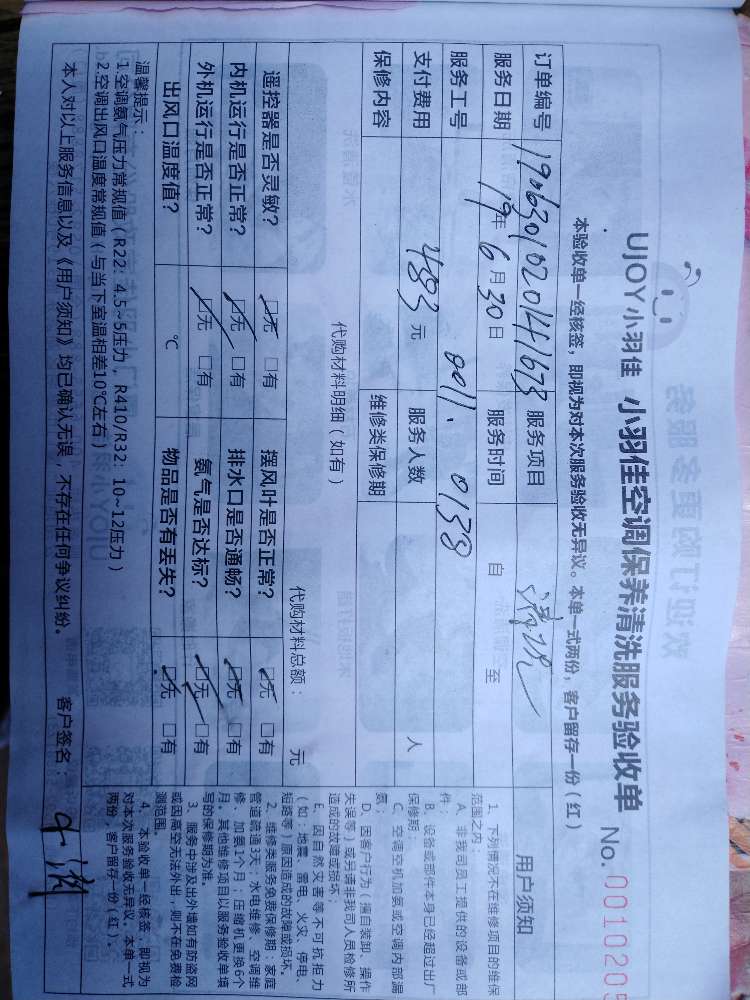 UJOY小羽佳 小羽佳空调保养清洗服务验收单
No. 0010205
本验收单一经核签，即视为对本次服务验收无异议。本单一式两份，客户留存一份（红）
订单编号 190630102041673 服务项目 清洗
服务日期 19年6月30日 服务时间 自 至
服务工号 0011、0138
支付费用 483元 服务人数 人
保修内容 维修类保修期
代购材料明细（如有）
代购材料总额： 元
遥控器是否灵敏？ ☑无 □有 摆风叶是否正常？ ☑无 □有
内机运行是否正常？ ☑无 □有 排水口是否通畅？ ☑无 □有
外机运行是否正常？ ☑无 □有 氨气是否达标？ ☑无 □有
出风口温度值？ ℃ 物品是否有丢失？ ☑无 □有
温馨提示：
1.空调氨气压力常规值（R22：4.5~5压力，R410/R32：10~12压力）
2.空调出风口温度常规值（与当下室温相差10℃左右）
本人对以上服务信息以及《用户须知》均已确认无误，不存在任何争议纠纷。 客户签名：
用户须知
1、下列情况不在维修项目的维保
范围之内：
A、非我司员工提供的设备或部
件；
B、设备或部件本身已经超过出厂
保修期；
C、空调空机加氨或空调内部漏
氨；
D、因客户行为（擅自装卸、操作
失误等）或另请非我司人员检修所
造成的故障或损坏；
E、因自然灾害等不可抗拒力
（如：地震、雷电、火灾、停电、
短路等）原因造成的故障或损坏。
2、维修类服务免费保修期：家庭
管道疏通3天；水电维修、空调维
修、加氨1个月；压缩机更换6个
月。其他维修项目以服务验收单填
写的保修期为准。
3、服务中涉及出外墙如有防盗网
或因高空无法外出，则不在免费检
测范围。
4、本验收单一经核签，即视为
对本次服务验收无异议，本单一式
两份，客户留存一份（红）。